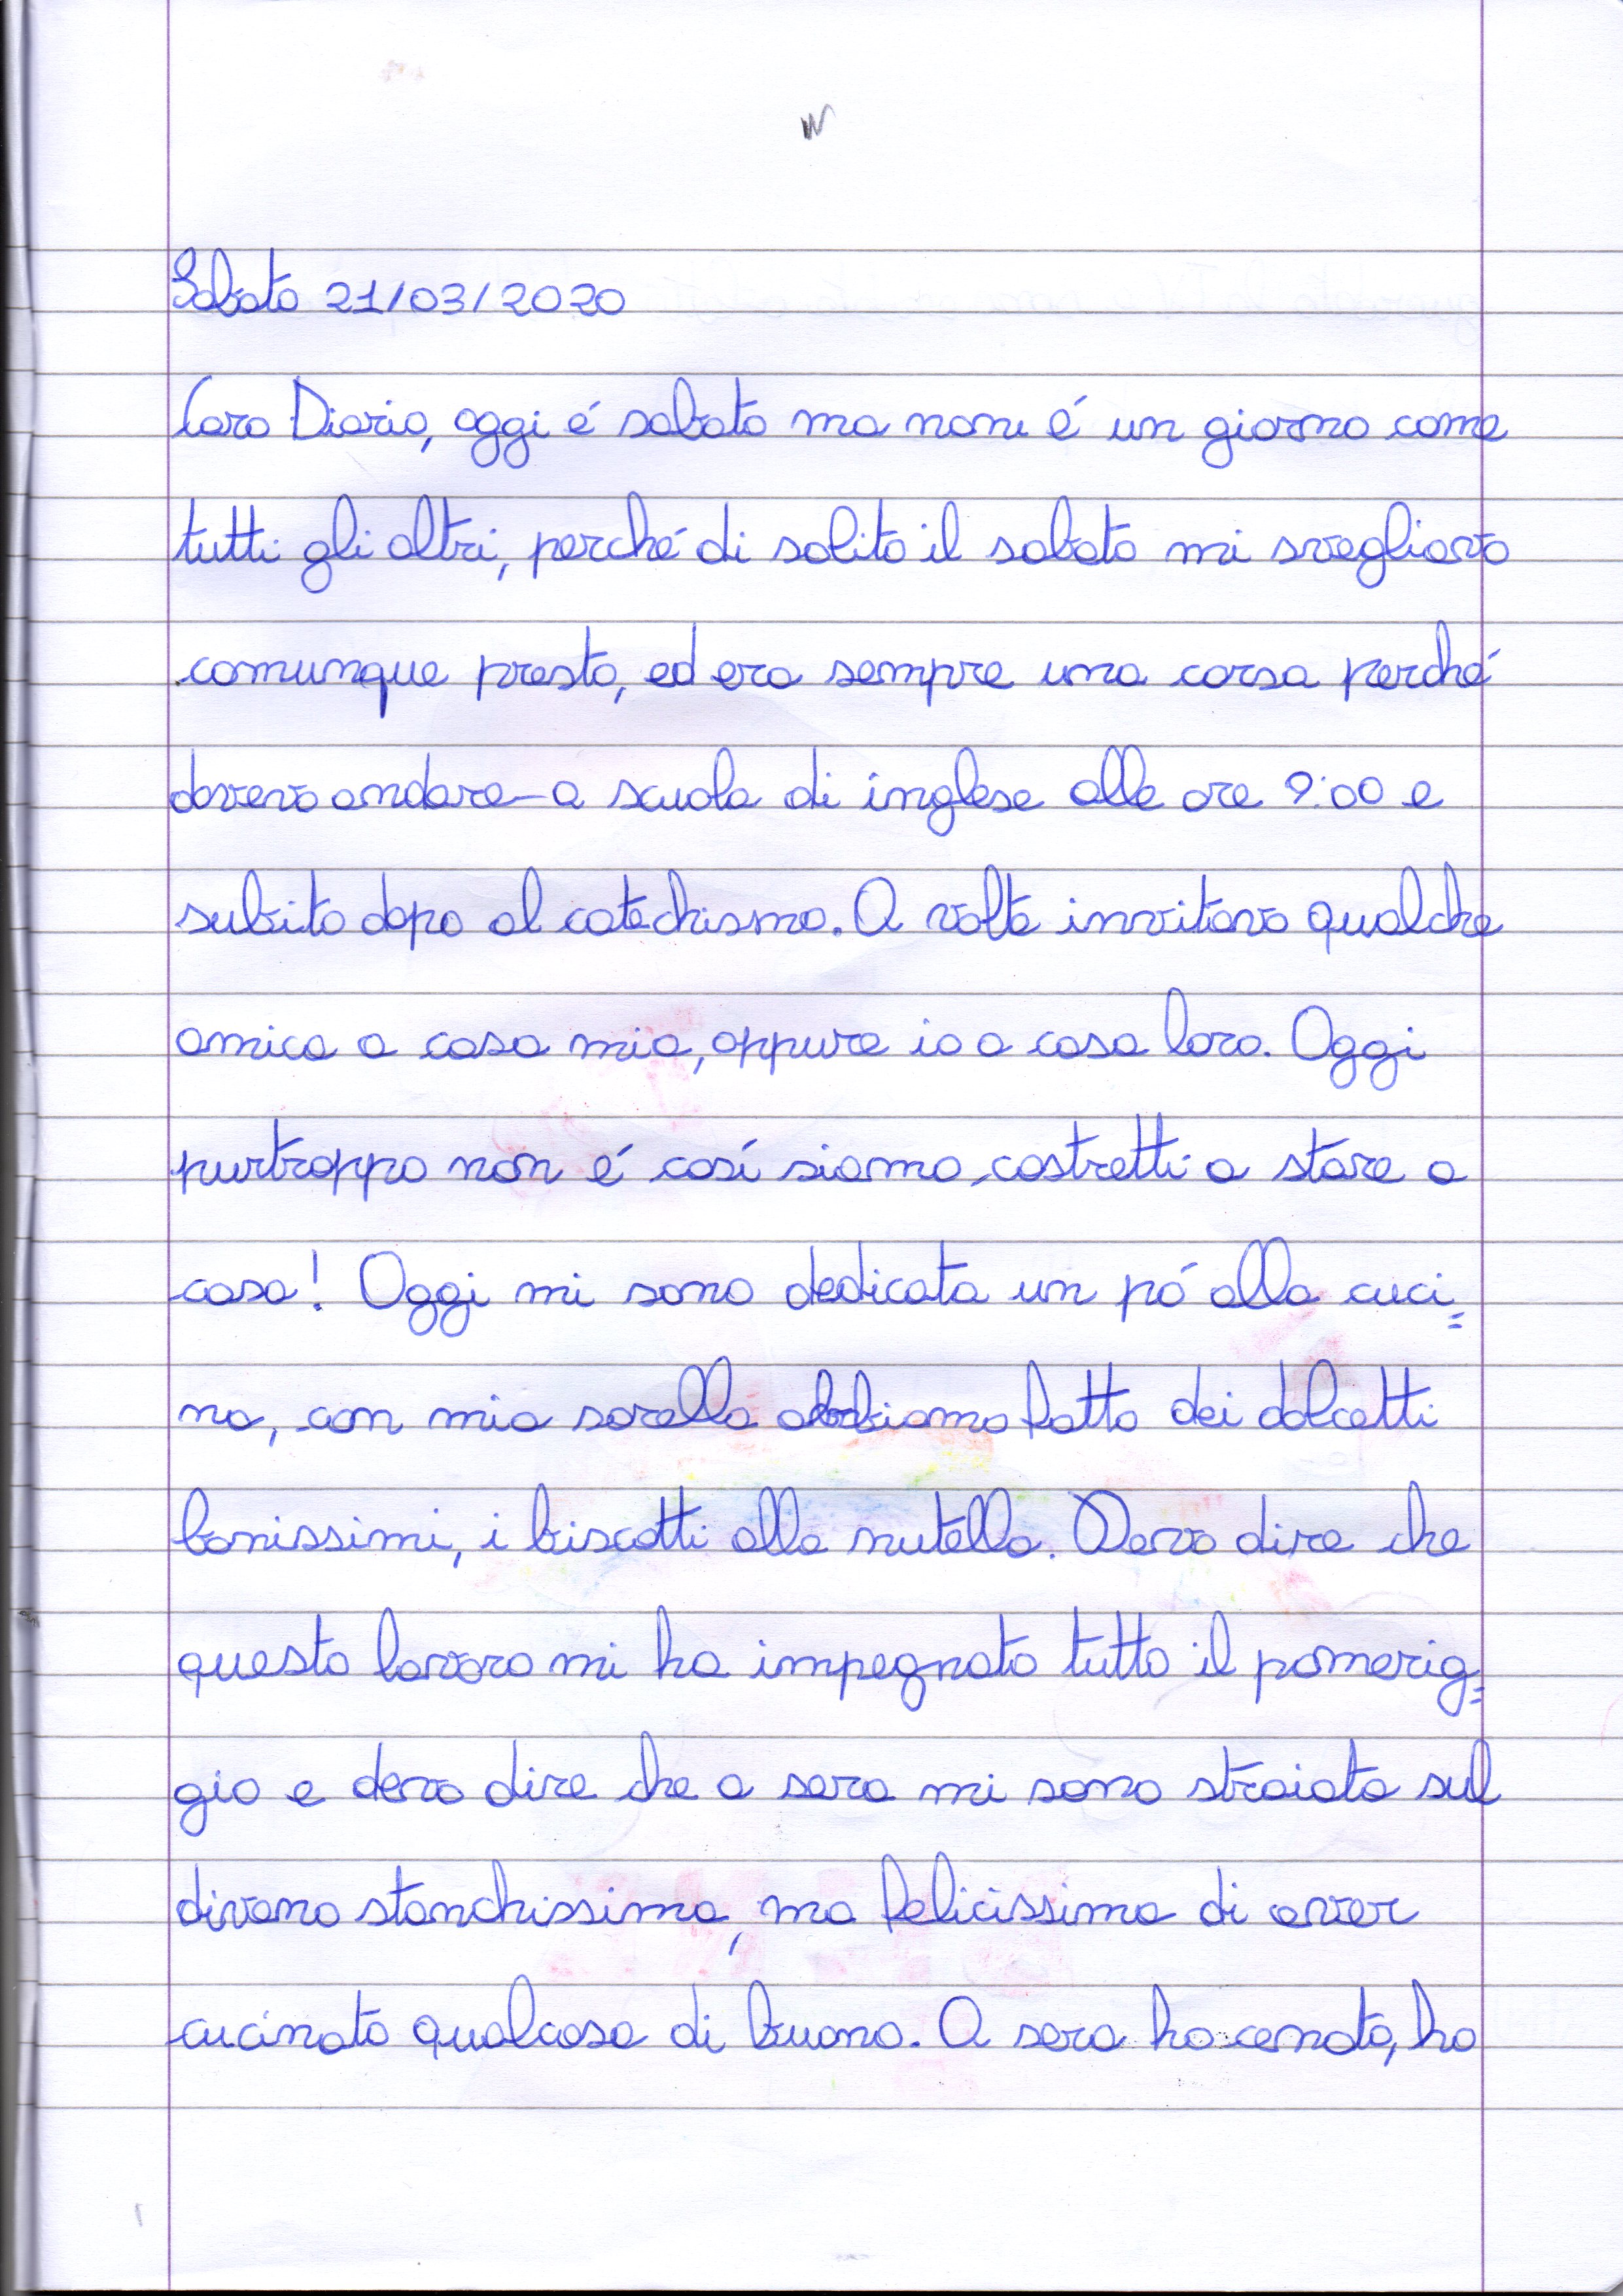 Sabato 21/03/2020
Caro Diario, oggi é sabato ma non é un giorno come
tutti gli altri, perché di solito il sabato mi svegliavo
comunque presto, ed era sempre una corsa perché
dovevo andare a scuola di inglese alle ore 9:00 e
subito dopo al catechismo. A volte invitavo qualche
amica a casa mia, oppure io a casa loro. Oggi
purtroppo non é cosí siamo costretti a stare a
casa! Oggi mi sono dedicata un pó alla cuci=
na, con mia sorella abbiamo fatto dei dolcetti
bonissimi, i biscotti alla nutella. Devo dire che
questo lavoro mi ha impegnato tutto il pomerig=
gio e devo dire che a sera mi sono straiata sul
divano stanchissima, ma felicissima di aver
cucinato qualcosa di buono. A sera ho cenato, ho